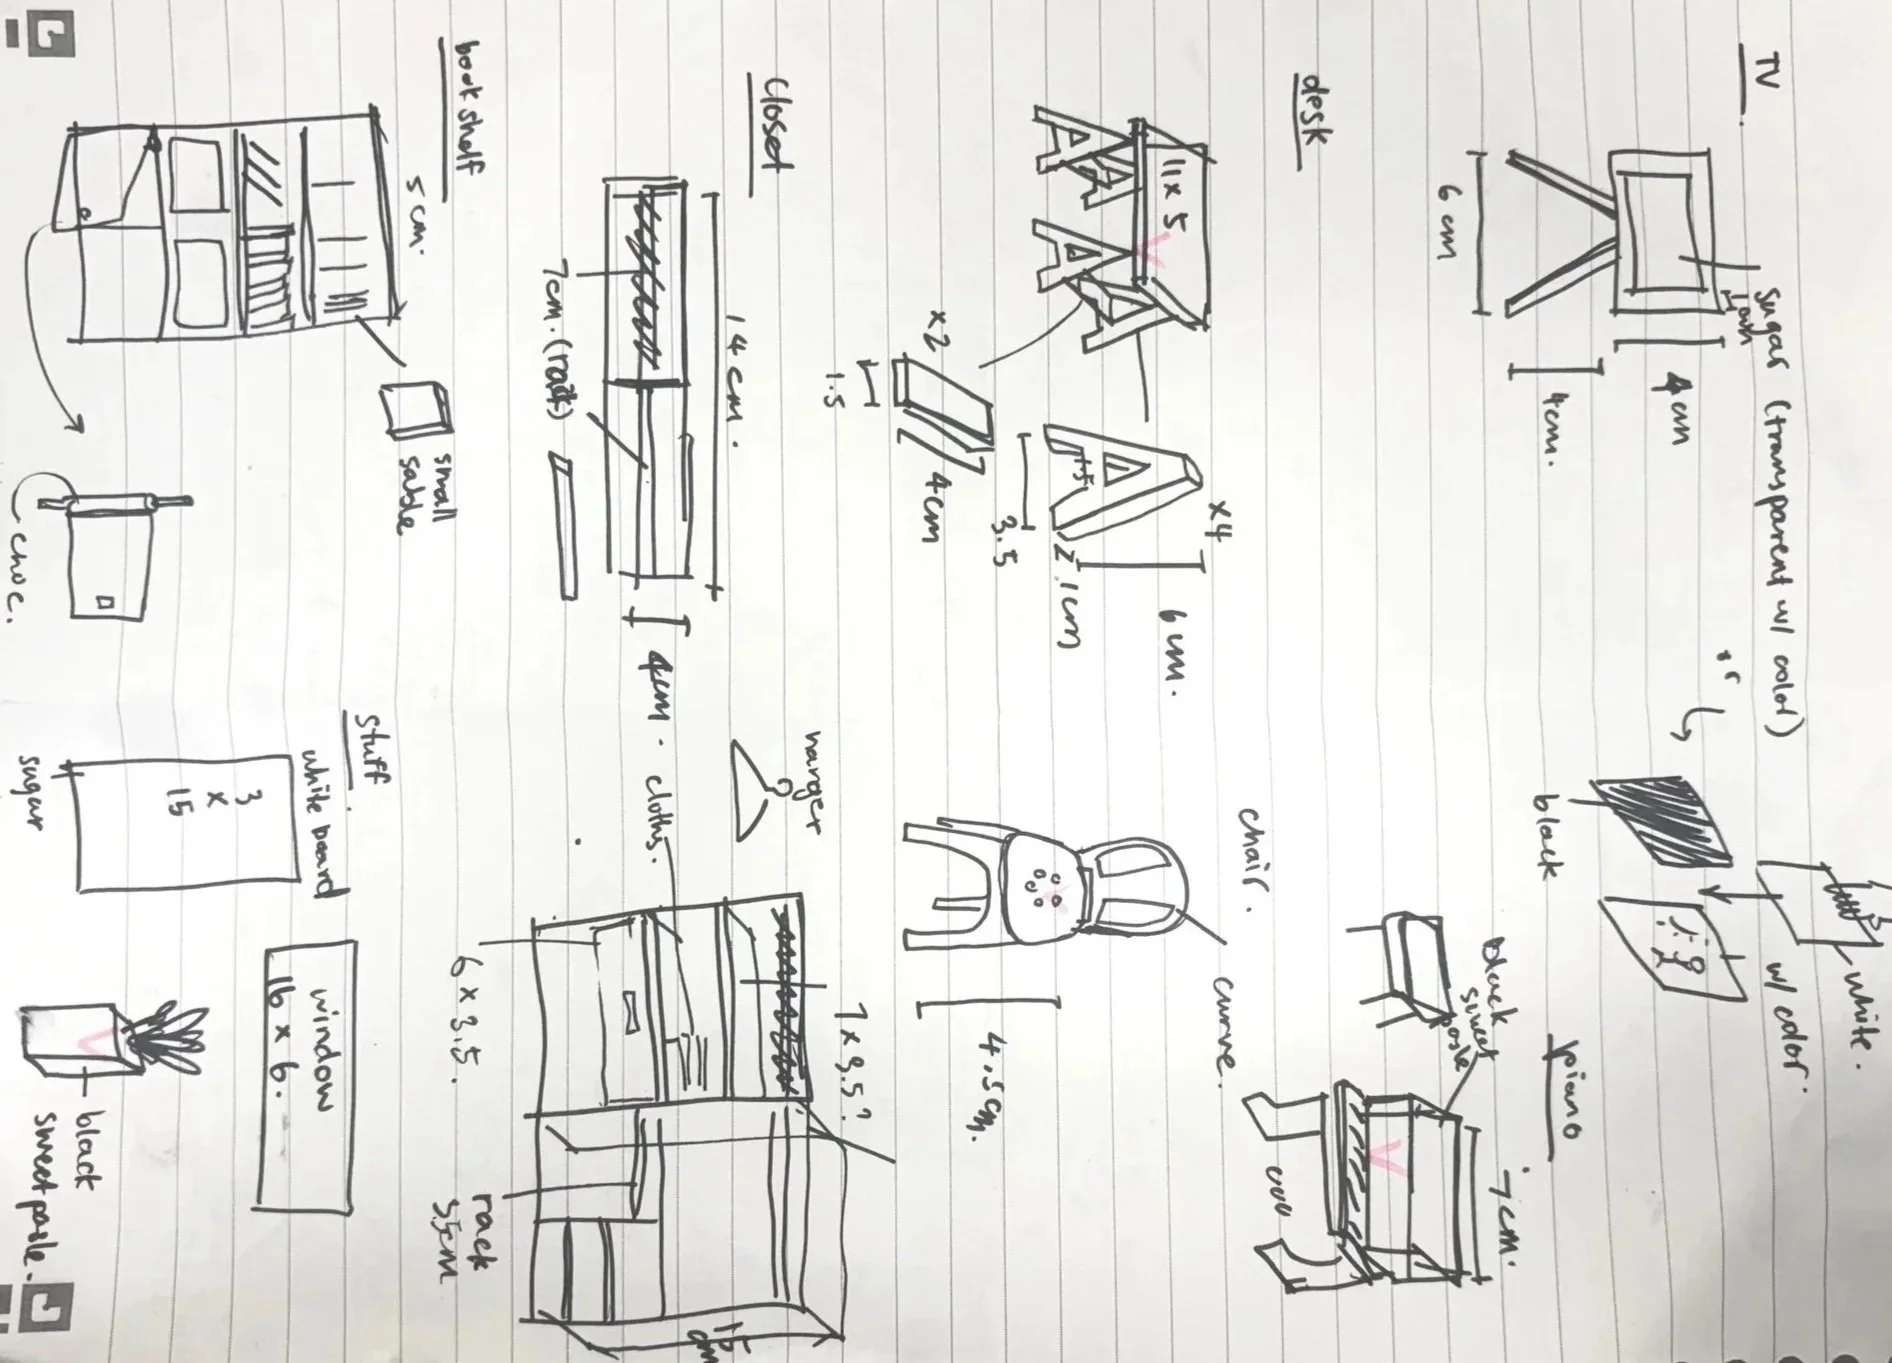 TV
6 cm
4cm.
4cm
1cm
sugar (transparent w/ color)
black
white.
w/ color.
desk
11 x 5
x2
1.5
4cm
x4
1.5
3.5
2.1cm
6cm.
piano
black
sweet
paste
7cm.
chair.
curve.
4.5cm.
closet
14cm.
7cm. (rack)
4cm.
hanger
cloths.
7 x 3.5?
6 x 3.5.
rack
3.5cm
15
cm
book shelf
5cm.
small
sable
choc.
stuff.
white board
3
x
15
sugar
window
16 x 6.
black
sweet paste.